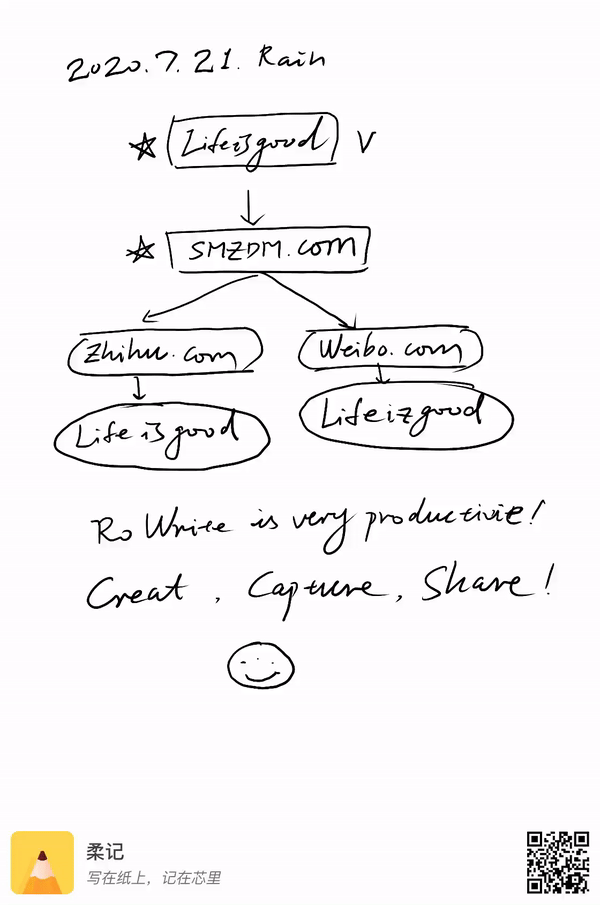 2020.7.21. Rain
Lifeisgood V
SMZDM.com
Zhihu.com Weibo.com
Life is good Life is good
Ro Write is very productivie!
Creat , Capture, Share!
柔记
写在纸上，记在芯里